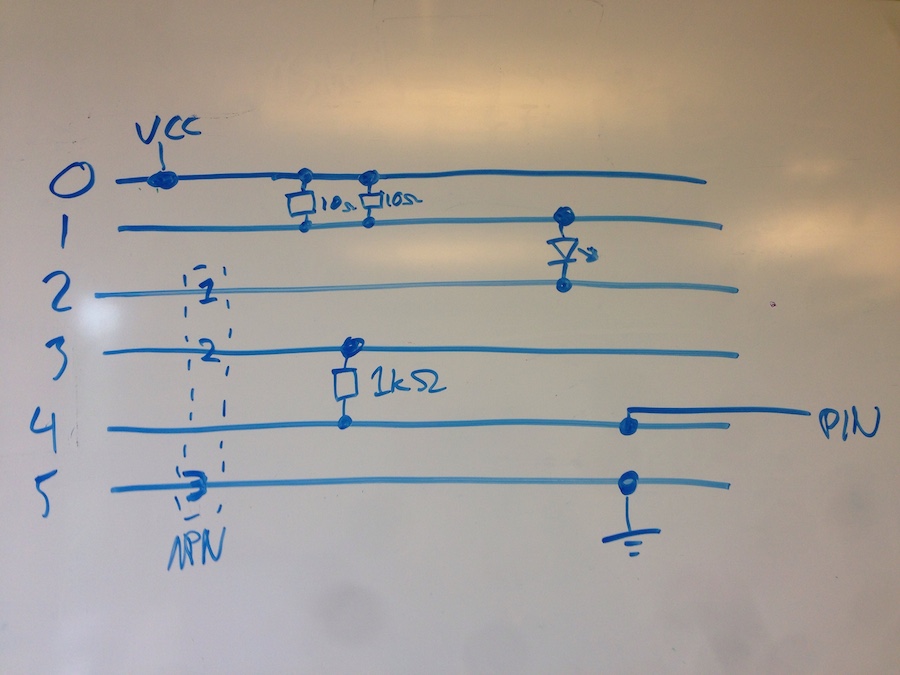 VCC
0
10Ω 10Ω
1
2 1
3 2
1kΩ
4
PIN
5 3
NPN